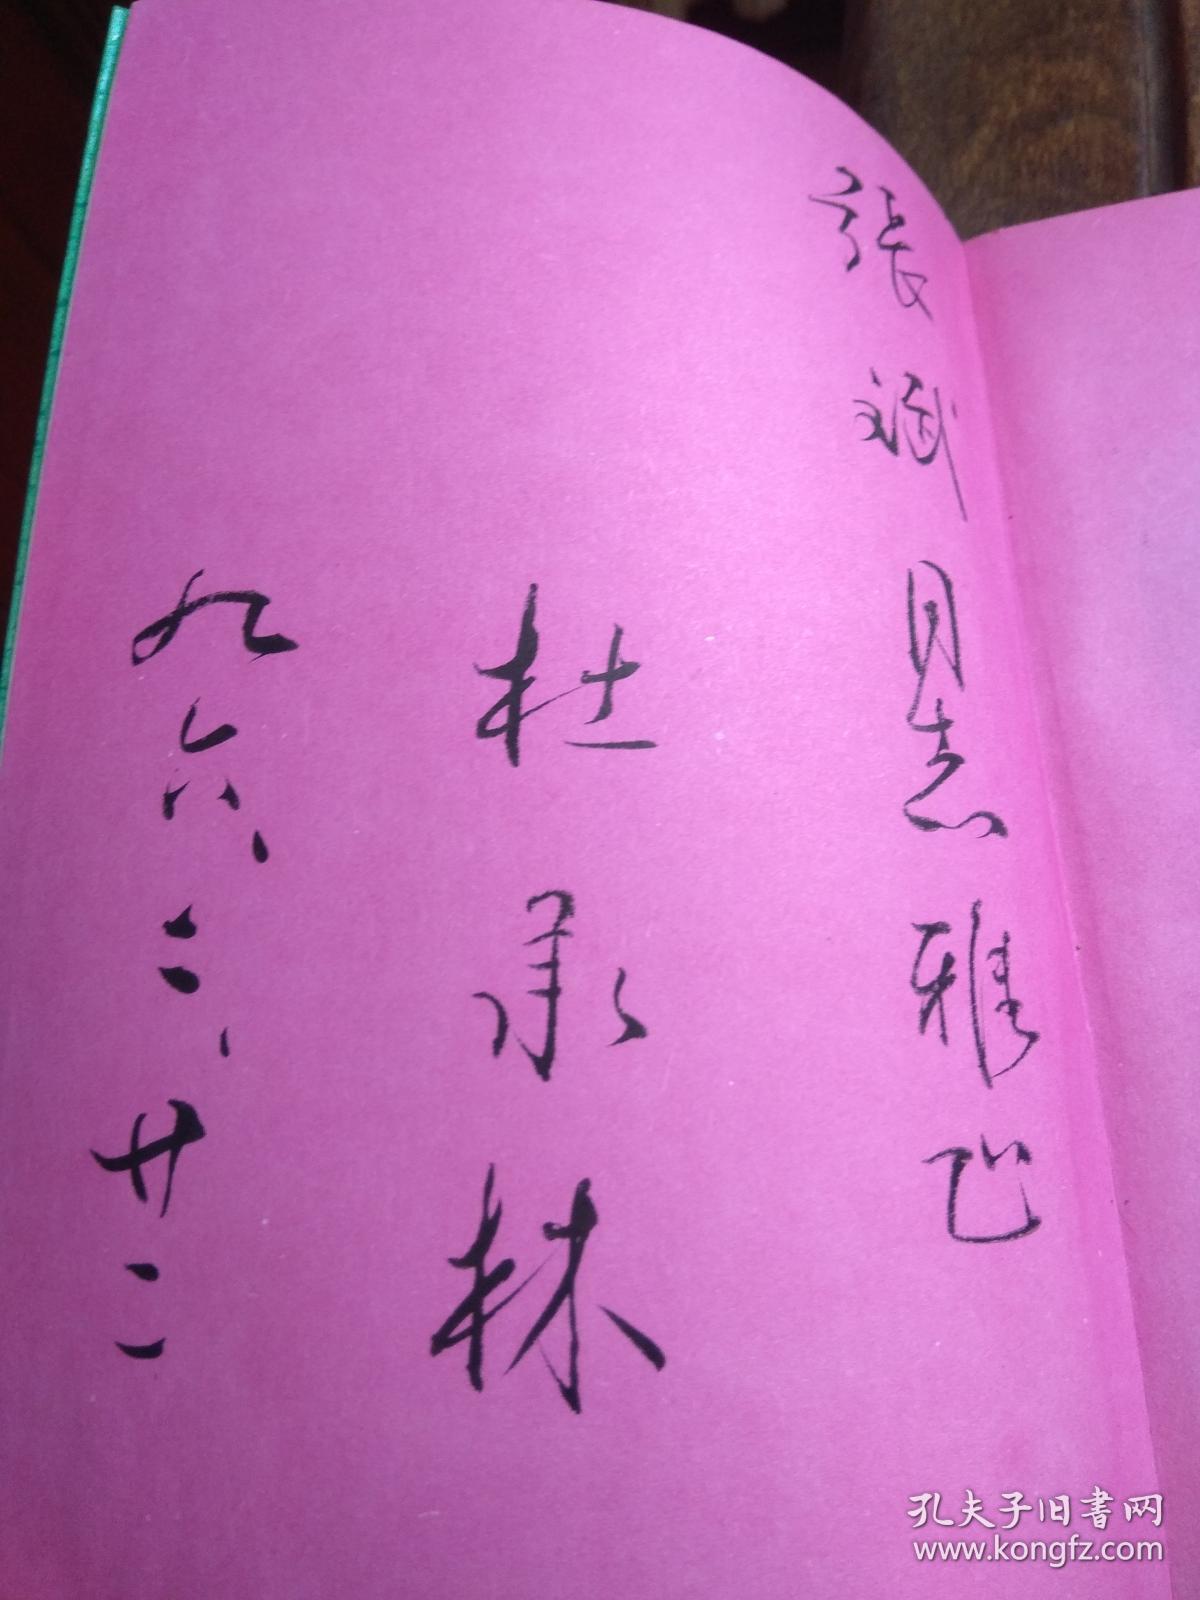 張斌同志雅正
杜承林
九六、二、廿二
孔夫子旧书网
www.kongfz.com